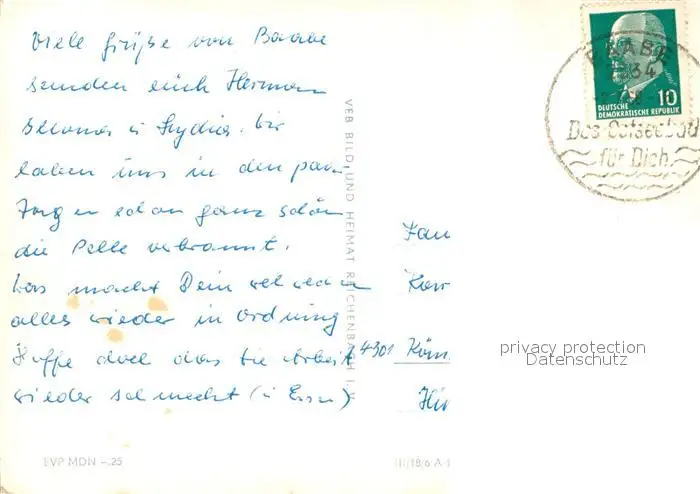 Viele Grüße von Baabe
senden euch Herman
u Sylvia. Wir
haben uns in den paar
Tagen schon ganz schön
die Pelle verbrannt.
Was macht Dein
alles wieder in Ordnung
Hoffe doch das die Arbeit
wieder schmeckt (u Essen)
VEB BILD UND HEIMAT REICHENBACH I. V.
BAABE
10
DEUTSCHE
DEMOKRATISCHE REPUBLIK
Das Ostseebad
für Dich
Fam
4301
privacy protection
Datenschutz
EVP MDN -.25
III/18/6 A